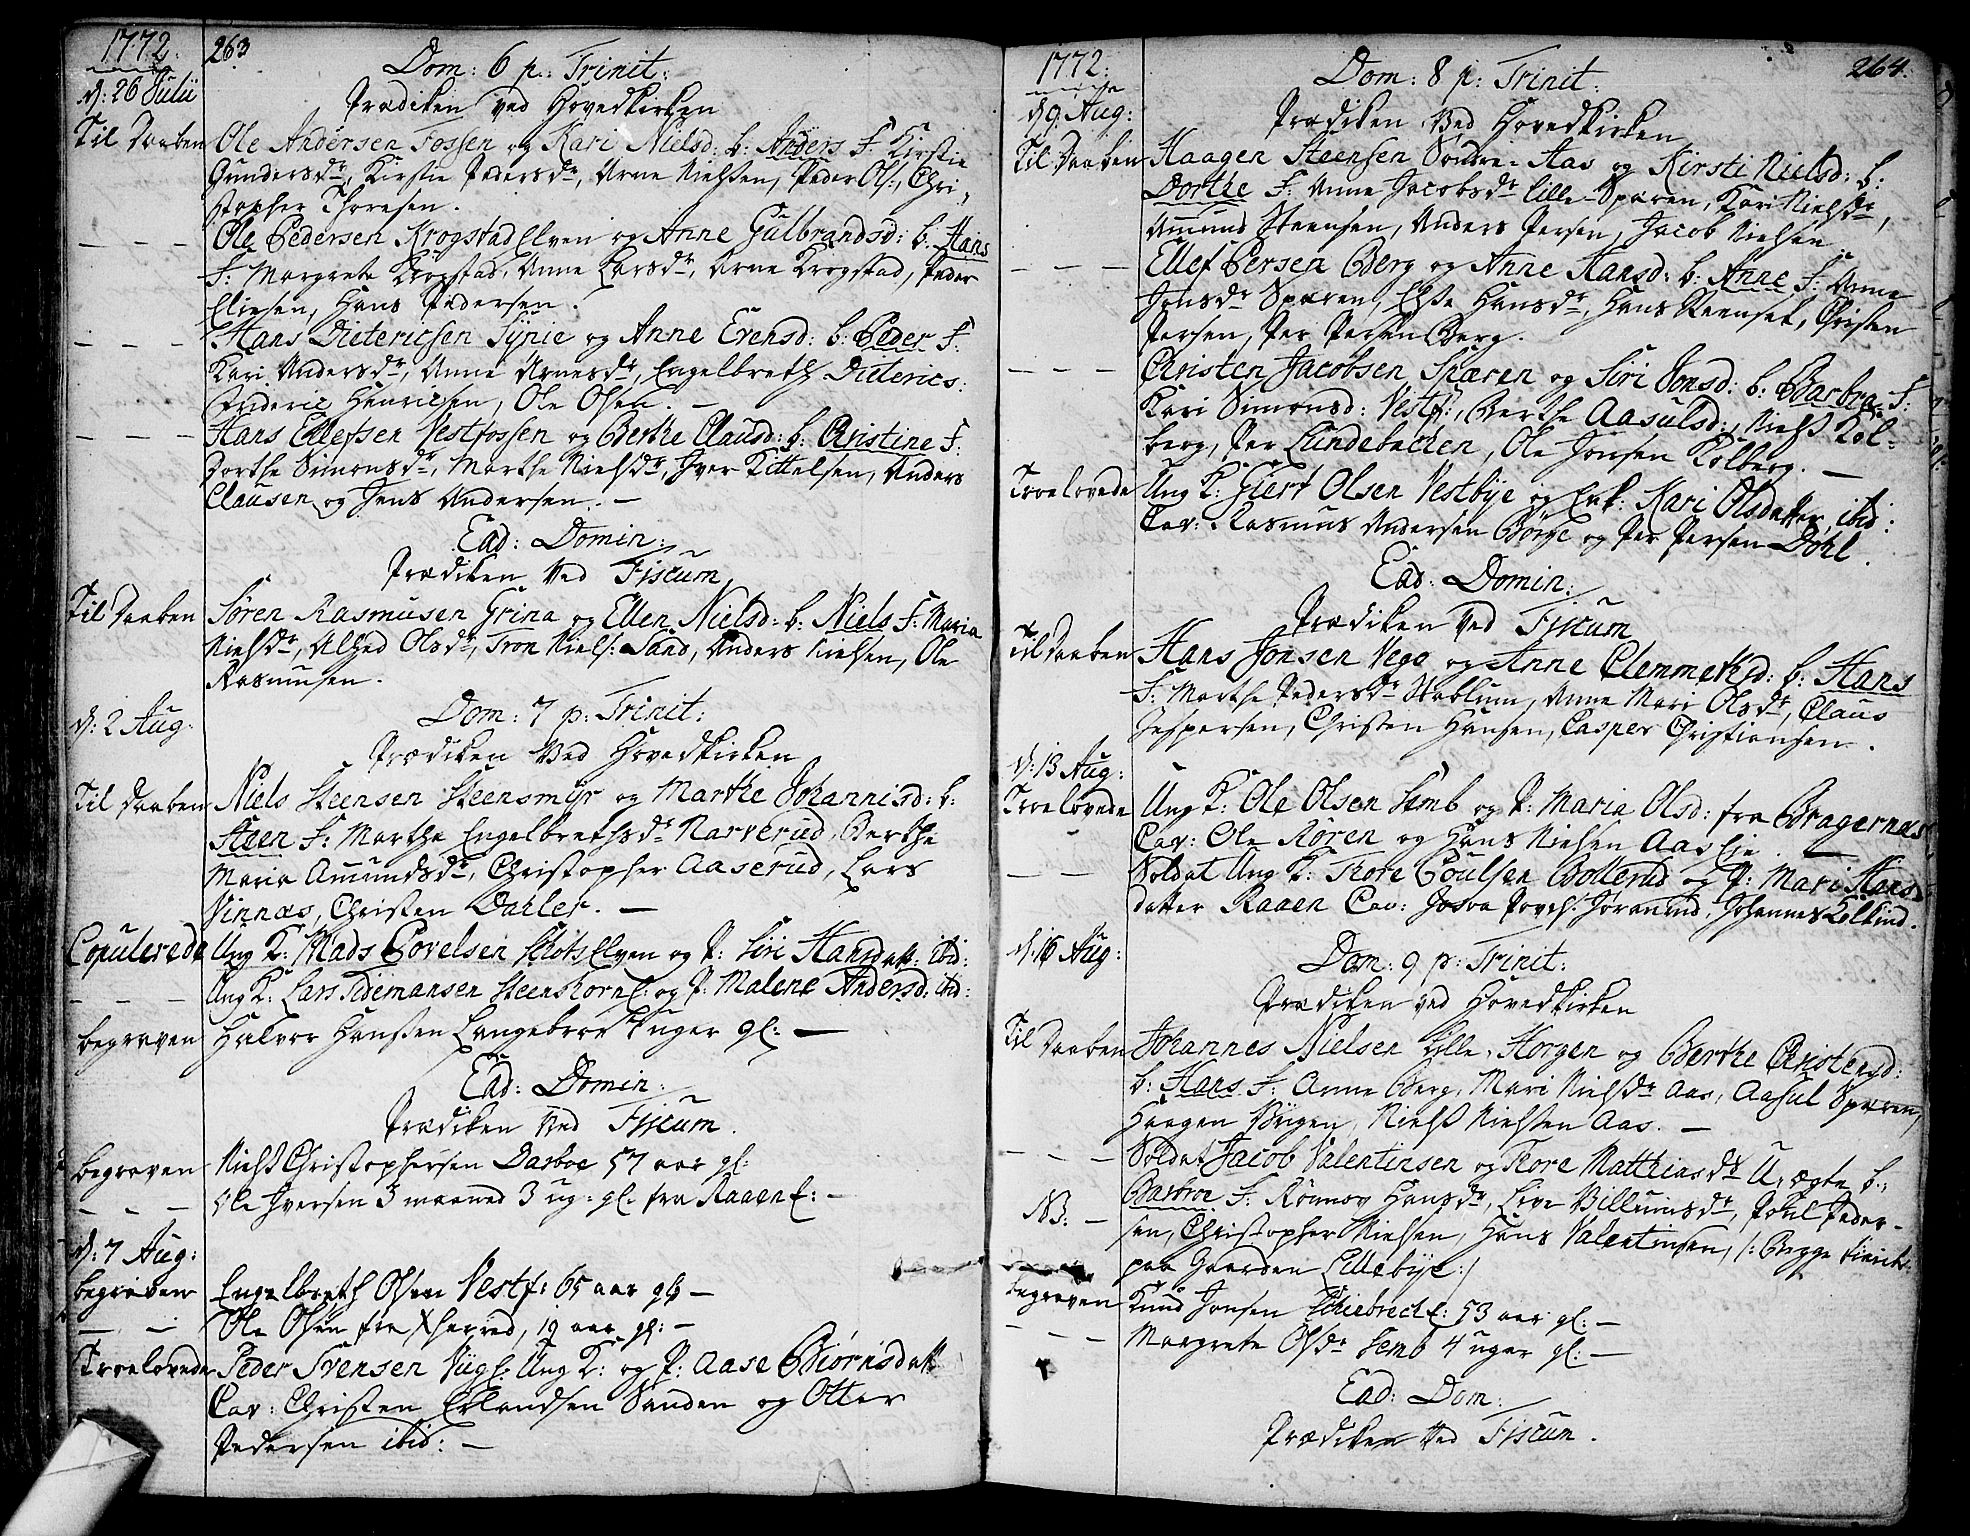 1772. 263
Dom: 6 p: Trinit:
d: 26 Julii
Prædiken ved Hovedkirken
Til Daaben Ole Andersen Fossen og Kari Nielsd: b: Anders F: Kirstie
Gundersdr, Kirstie Pedersdr, Arne Nielsen, Peder Ols:, Chri-
stopher Thoresen.
– – – Ole Pedersen Krogstadelven og Anne Gulbrandsd: b: Hans
F: Margrete Krogstad, Anne Larsdr, Arne Krogstad, Peder
Eliesen, Hans Pedersen.
– – – Hans Dieterichsen Synie og Anne Erensd: b: Peder F:
Kari Andersdr, Anne Arnesdr, Engelbreth Dieterics:
Frideric Henricsen, Ole Olsen. –
– – – Hans Ellefsen Vestfossen og Berthe Clausd: b: Christine F:
Dorthe Simonsdr, Marthe Nielsdr, Iver Kittelsen, Anders
Clausen og Jens Andersen. –
Ead: Domin:
Prædiken Ved Fiscum
Til Daaben Søren Rasmusen Grina og Ellen Nielsd: b: Niels F: Maria
Nielsdr, Alhed Olsdr, Tron Niels: Sand, Anders Nielsen, Ole
Rasmusen.
d: 2 Aug: Dom: 7 p: Trinit:
Prædiken Ved Hovedkirken
Til Daaben Niels Steensen Steensmyr og Marthe Johannisd: b:
Steen F: Marthe Engelbrethsdr Narverud, Berthe
Maria Amundsdr, Christopher Aaserud, Lars
Vinnæs, Christen Dahler. –
Copulerede Ung K: Mads Povelsen Skotselven og P: Siri Hansdatt: ibid:
– – – Ung K: Lars Tidemansen SteenKornE: og P: Malene Andersd: ibid:
begraven Halvor Hansen Langebroe uger gl: –
Ead: Domin:
Prædiken Ved Fiscum.
begraven Niels Christophersen Dasboe 57 aar gl:
– – – Ole Iversen 3 maaned 3 ug: gl: fra RaaenE: –
d: 7 Aug:
begraven Engelbreth Olsen Vestf: 65 aar gl: –
– – – Ole Olsen fra 19 aar gl: –
Troelovede Peder Svensen Ung K: og P: Aase Biørnsdatt
Cav: Christen Erlandsen Sanden og Otter
Pedersen ibid: –
1772. 264.
Dom: 8 p: Trinit:
d 9. Aug:
Prædiken Ved Hovedkirken
Til Daaben Haagen Steensen Søndre-Aas og Kirsti Nielsd: b:
Dorthe F: Anne Jacobsdr lille-Spæren, Kari Nielsdr,
Amund Steensen, Anders Persen, Jacob Nielsen
– – – Ellef Persen Berg og Anne Hansd: b: Anne F: Anne
Jonsdr Spæren, Else Hansdr, Hans Steenset, Christen
Persen, Per Persen Berg.
– – – Christen Jacobsen Spæren og Siri Jonsd: b: Barbra F:
Kari Simonsd: Vestf:, Berthe Aasulsd:, Niels Kol-
berg, Per Lundebachen, Ole Jonsen Kolberg. –
Troelovede Ung K: Giert Olsen Vestbye og Enk: Kari Olsdatter ibid:
Cav: Rasmus Andersen Børge og Per Persen Dohl.
Ead: Domin:
Prædiken Ved Fiscum
Til Daaben Hans Jonsen Vego og Anne Clemmetsd: b: Hans
F: Marthe Pedersdr Stablum, Anne Mari Olsdr, Claus
Jespersen, Christen Hansen, Casper Christiansen.
d: 13 Aug:
Troelovede Ung K: Ole Olsen Semb og P: Maria Olsd: fra Bragernæs
Cav: Ole Røren og Hans Nielsen Aas Eje. –
– – Soldat Ung K: Thore Poulsen Bollerud og P: Mari Hans
datter Raaen Cav: Josva Joranrud, Johannes Kolkind.
d: 16 Aug:
Dom: 9 p: Trinit:
Prædiken ved Hovedkirken
Til Daaben Johannes Nielsen Lille-Horgen og Berthe Christensd:
b: Hans F: Anne Berg, Mari Nielsdr Aas, Aasul Spæren,
Haagen Skigen, Niels Nielsen Aas. –
– – – Soldat Jacob Valentinsen og Thore Matthiasdr U-ægte b:
NB: – Barbroe F: Rønnov Hansdr, Live Villumsdr, Poul Peder-
sen, Christopher Nielsen, Hans Valentinsen, /: Begge
paa Gaarden Lillebye :/
begraven Knud Jonsen E: 53 aar gl: –
– – – Margrete Olsdr Semb 4 uger gl: –
Ead: Dom:
Prædiken Ved Fiscum.